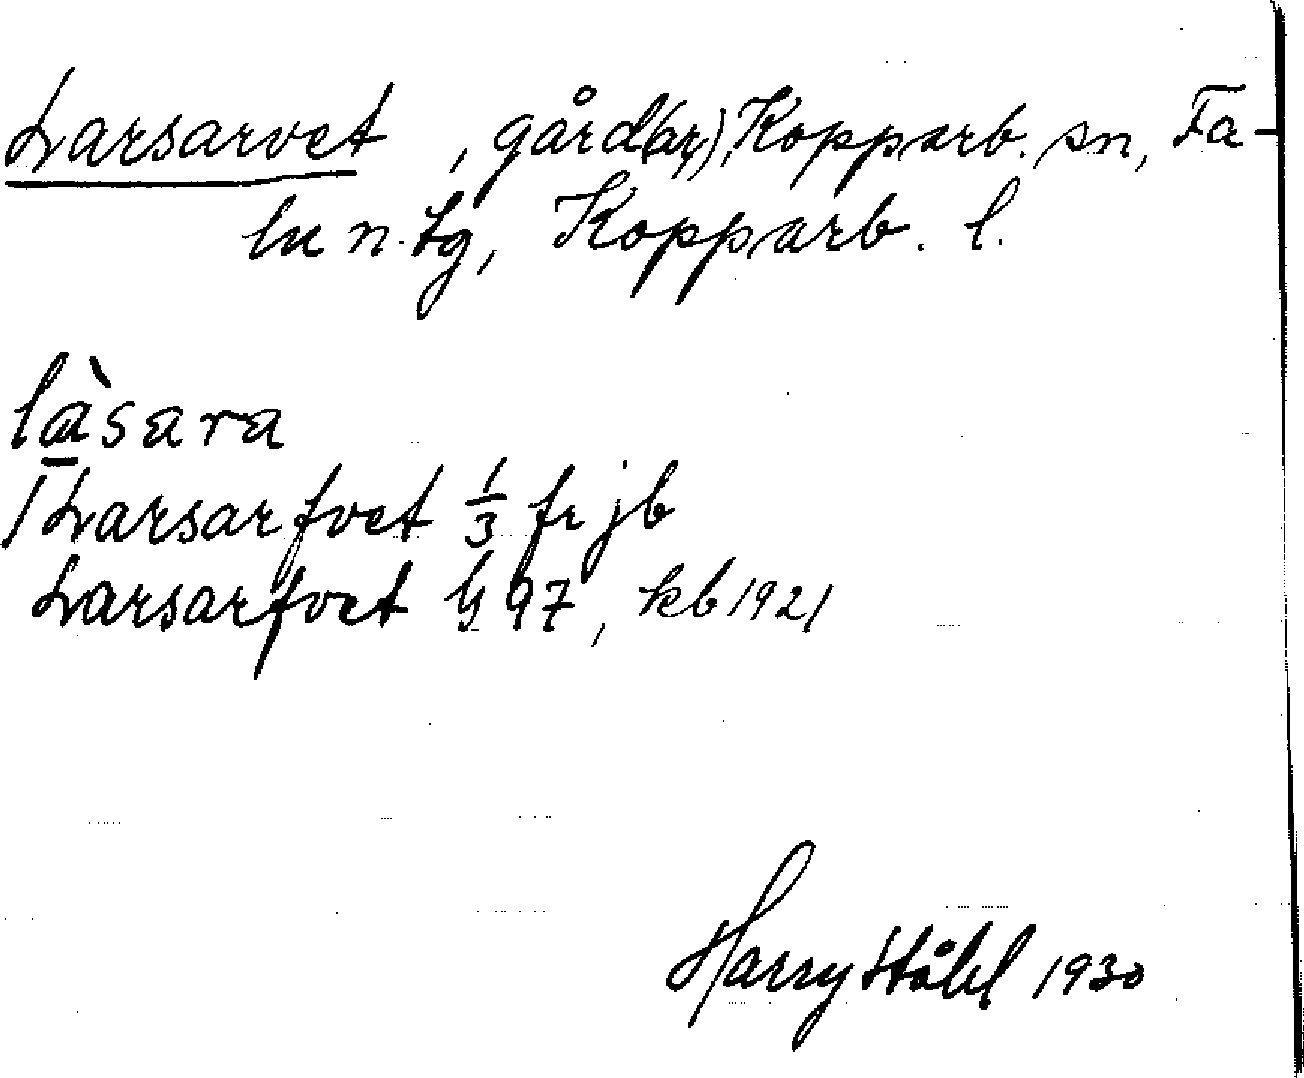 Larsarvet, gård(ar), Kopparb. sn, Fa-
lu n. tg, Kopparb. l.
là̱sara
Larsarfvet 1/3 fr jb
Larsarfvet G 97, kb 1921
Harry Ståhl 1930